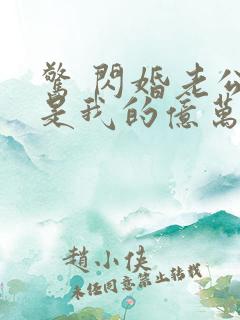 驚 閃婚老公
是我的億萬
趙小俠
未經同意禁止轉載